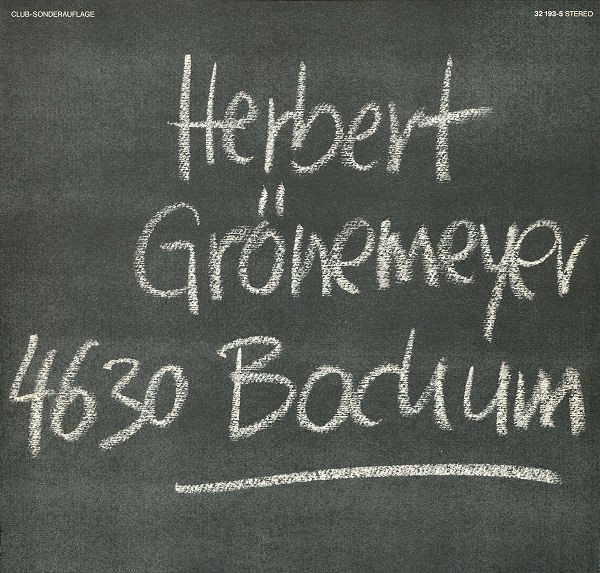 CLUB-SONDERAUFLAGE
32 193-5 STEREO
Herbert
Grönemeyer
4630 Bochum